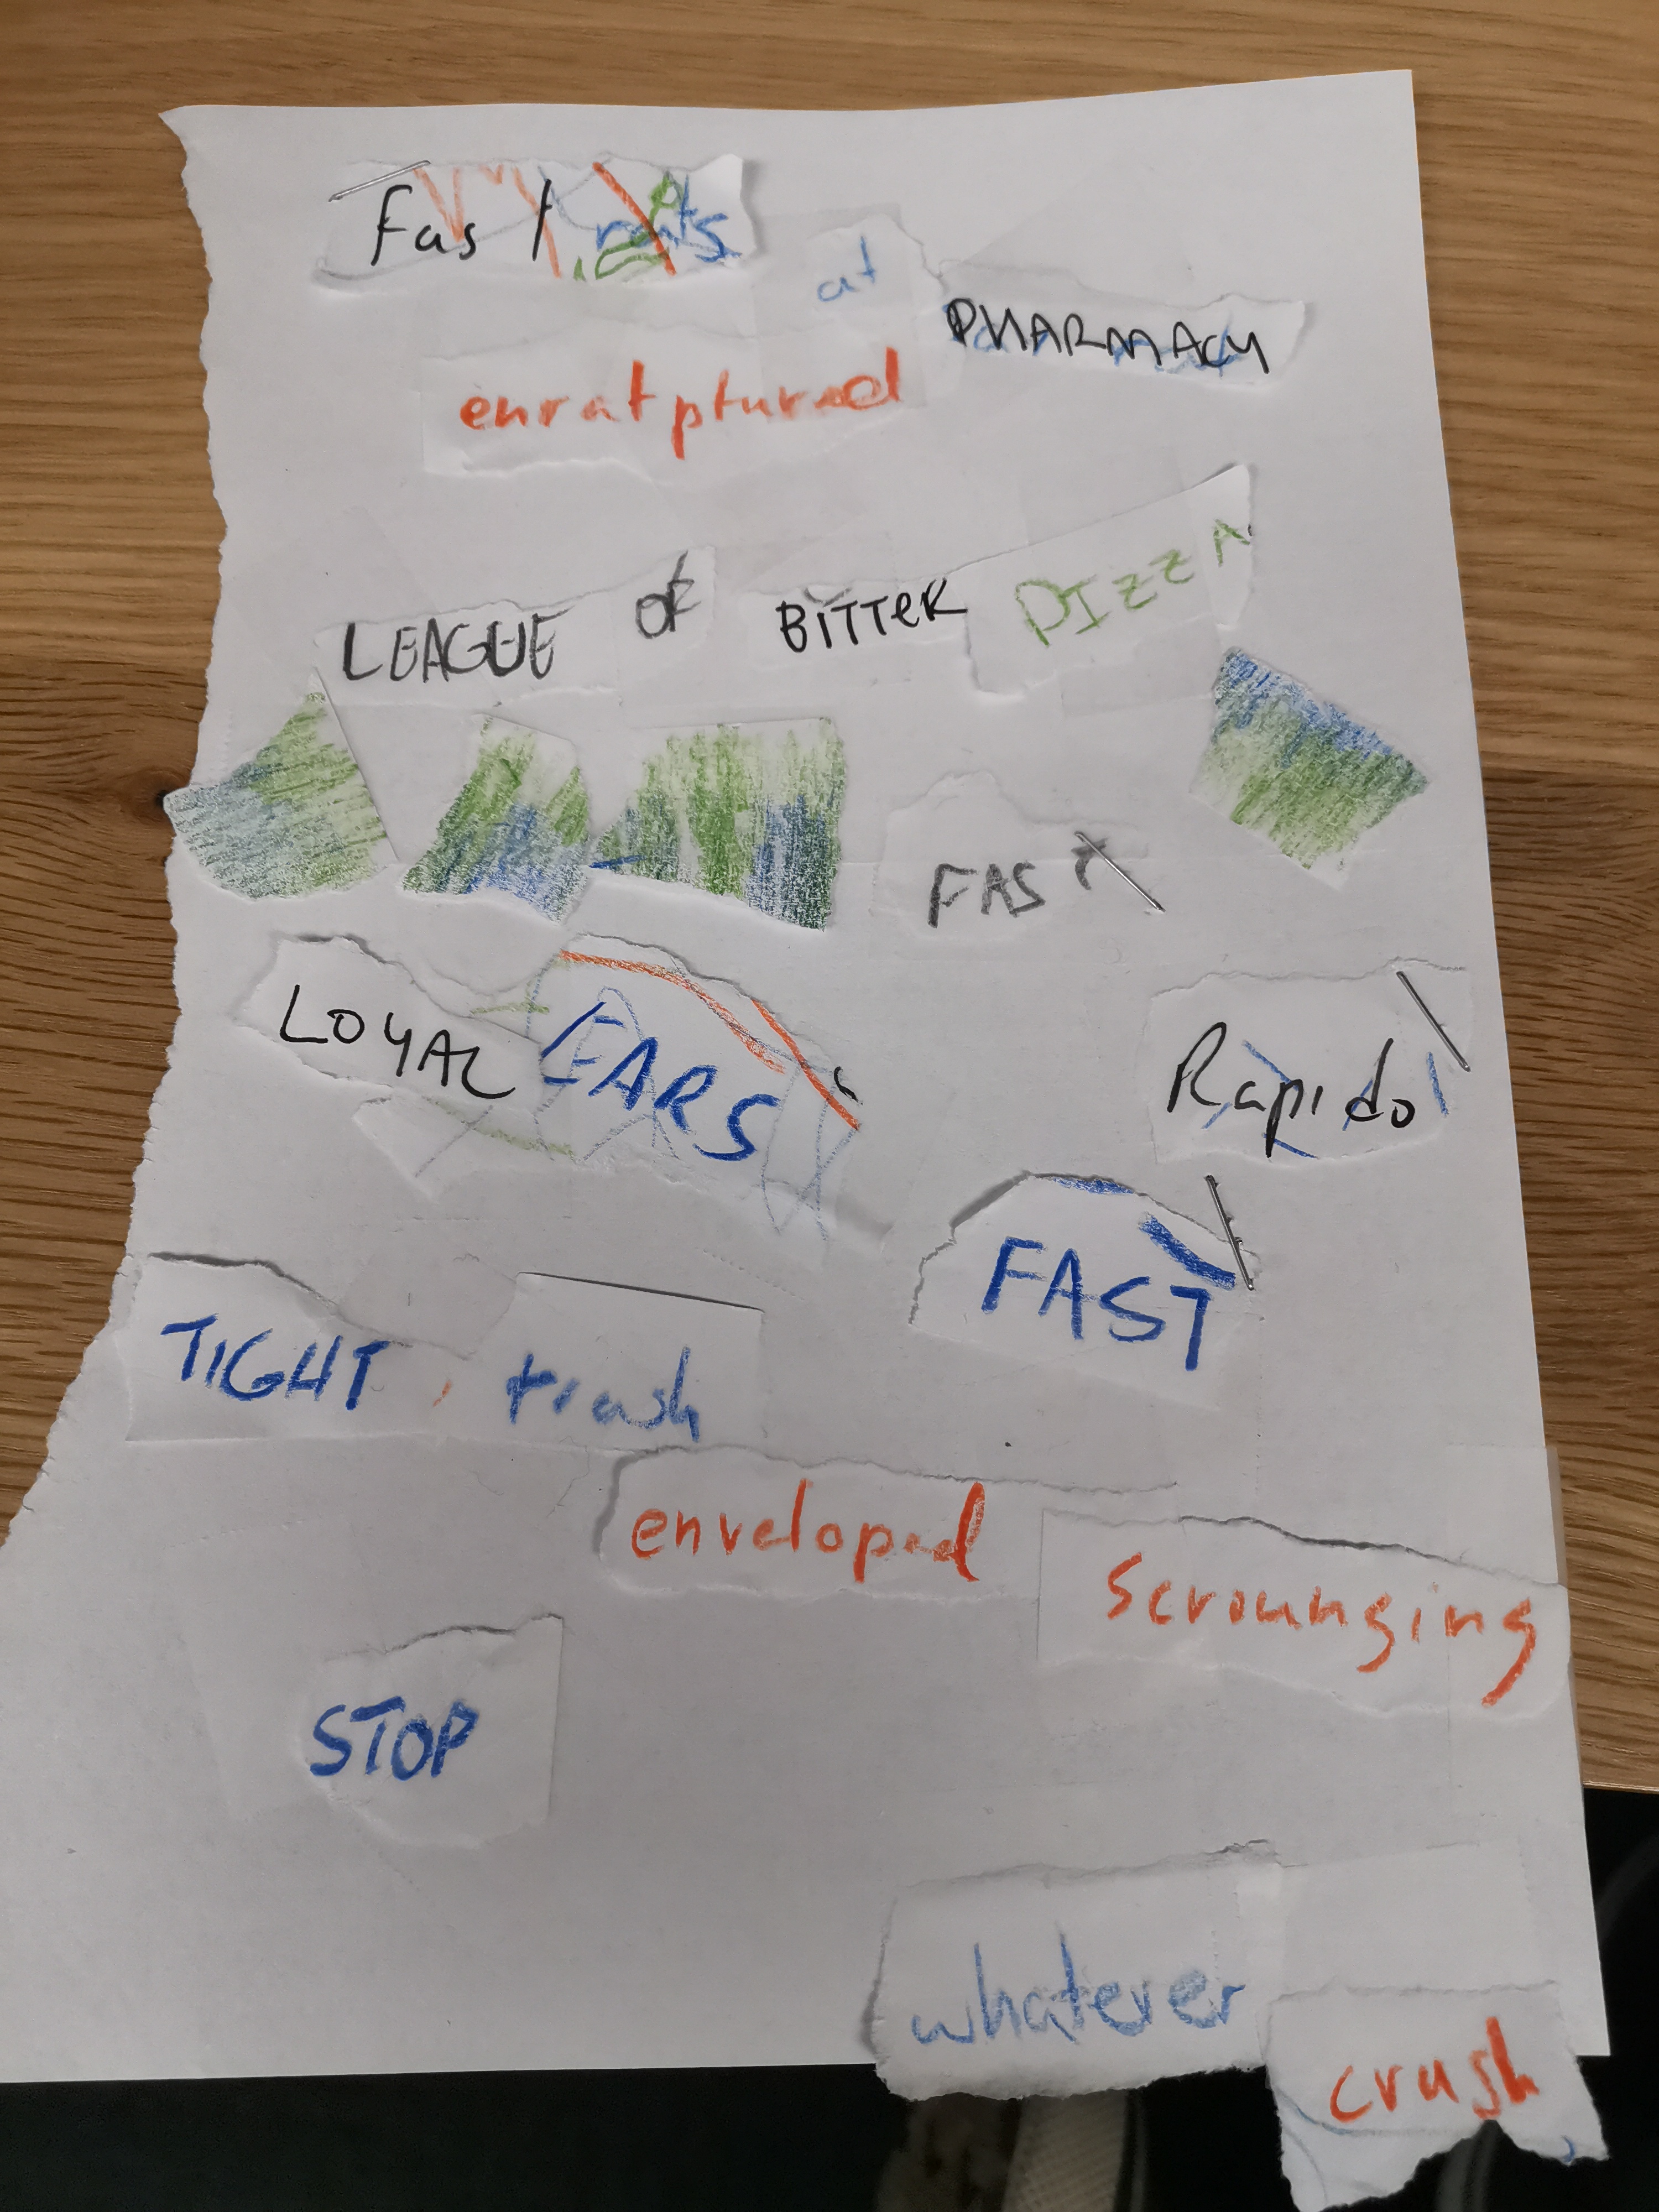 Fast
at
PHARMACY
enratptured
LEAGUE OF BITTER PIZZA
FAST
LOYAL EARS
Rapido
FAST
TIGHT trash
enveloped
scrounging
STOP
whatever
crush